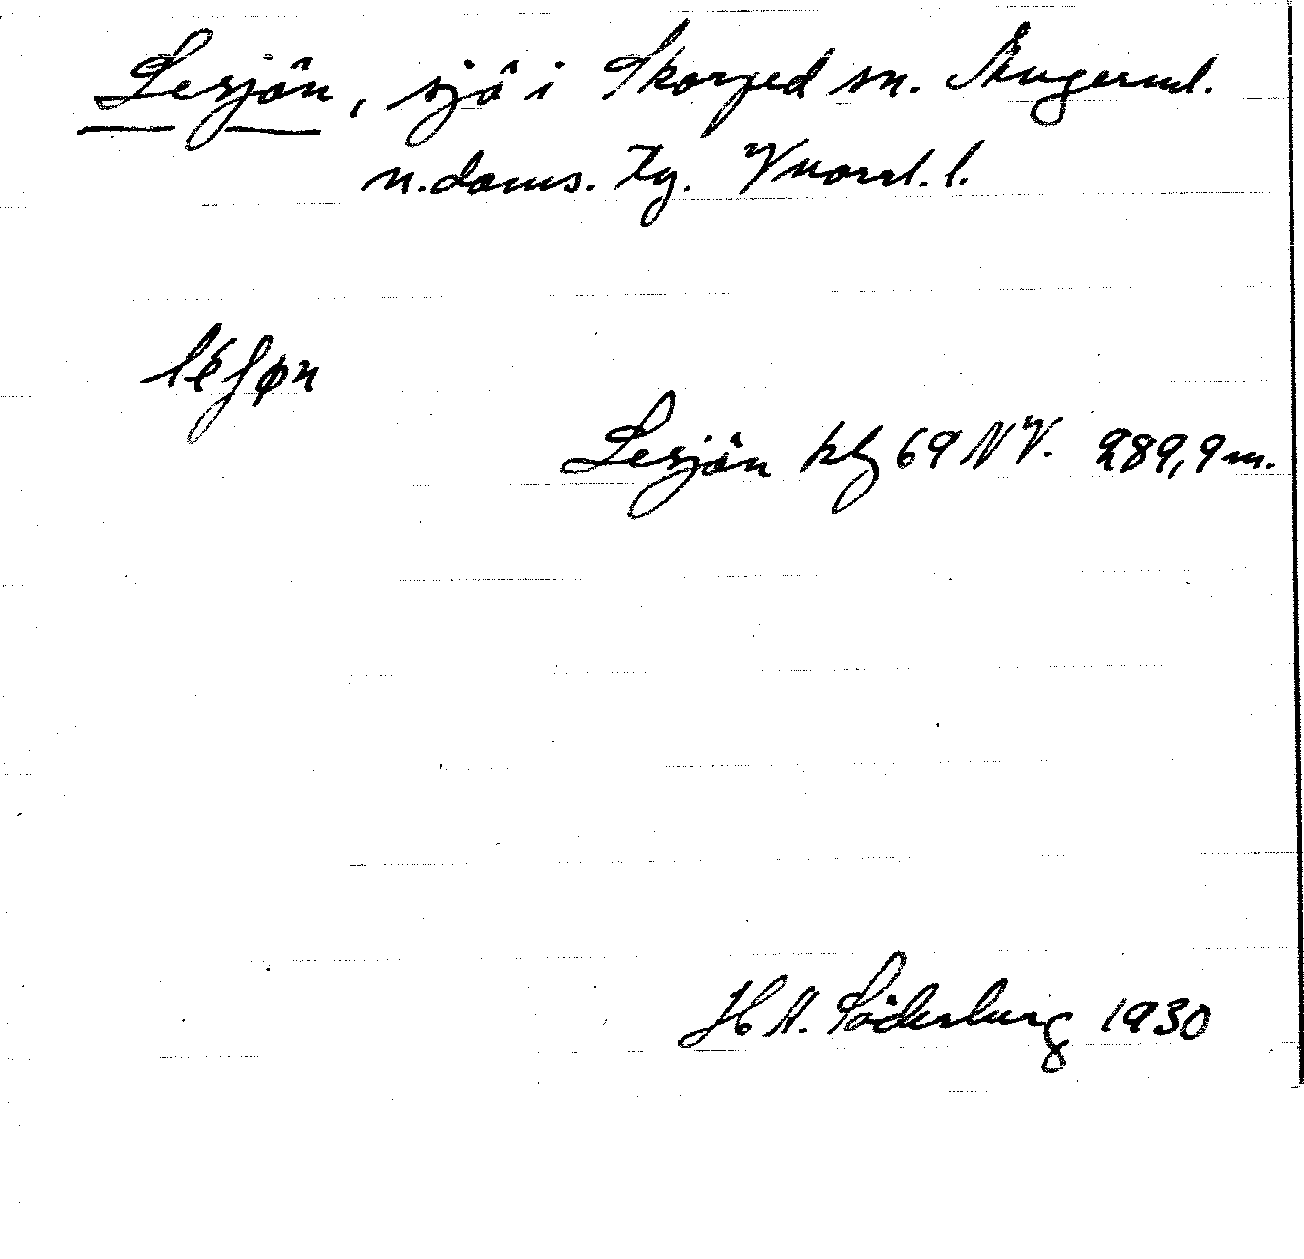 Lesjön, sjö i Skorped sn. Ångerml.
n. doms. tg. Vnorrl. l.
léʃøn
Lesjön kbl 69 NV. 289,9 m.
H A. Söderberg 1930